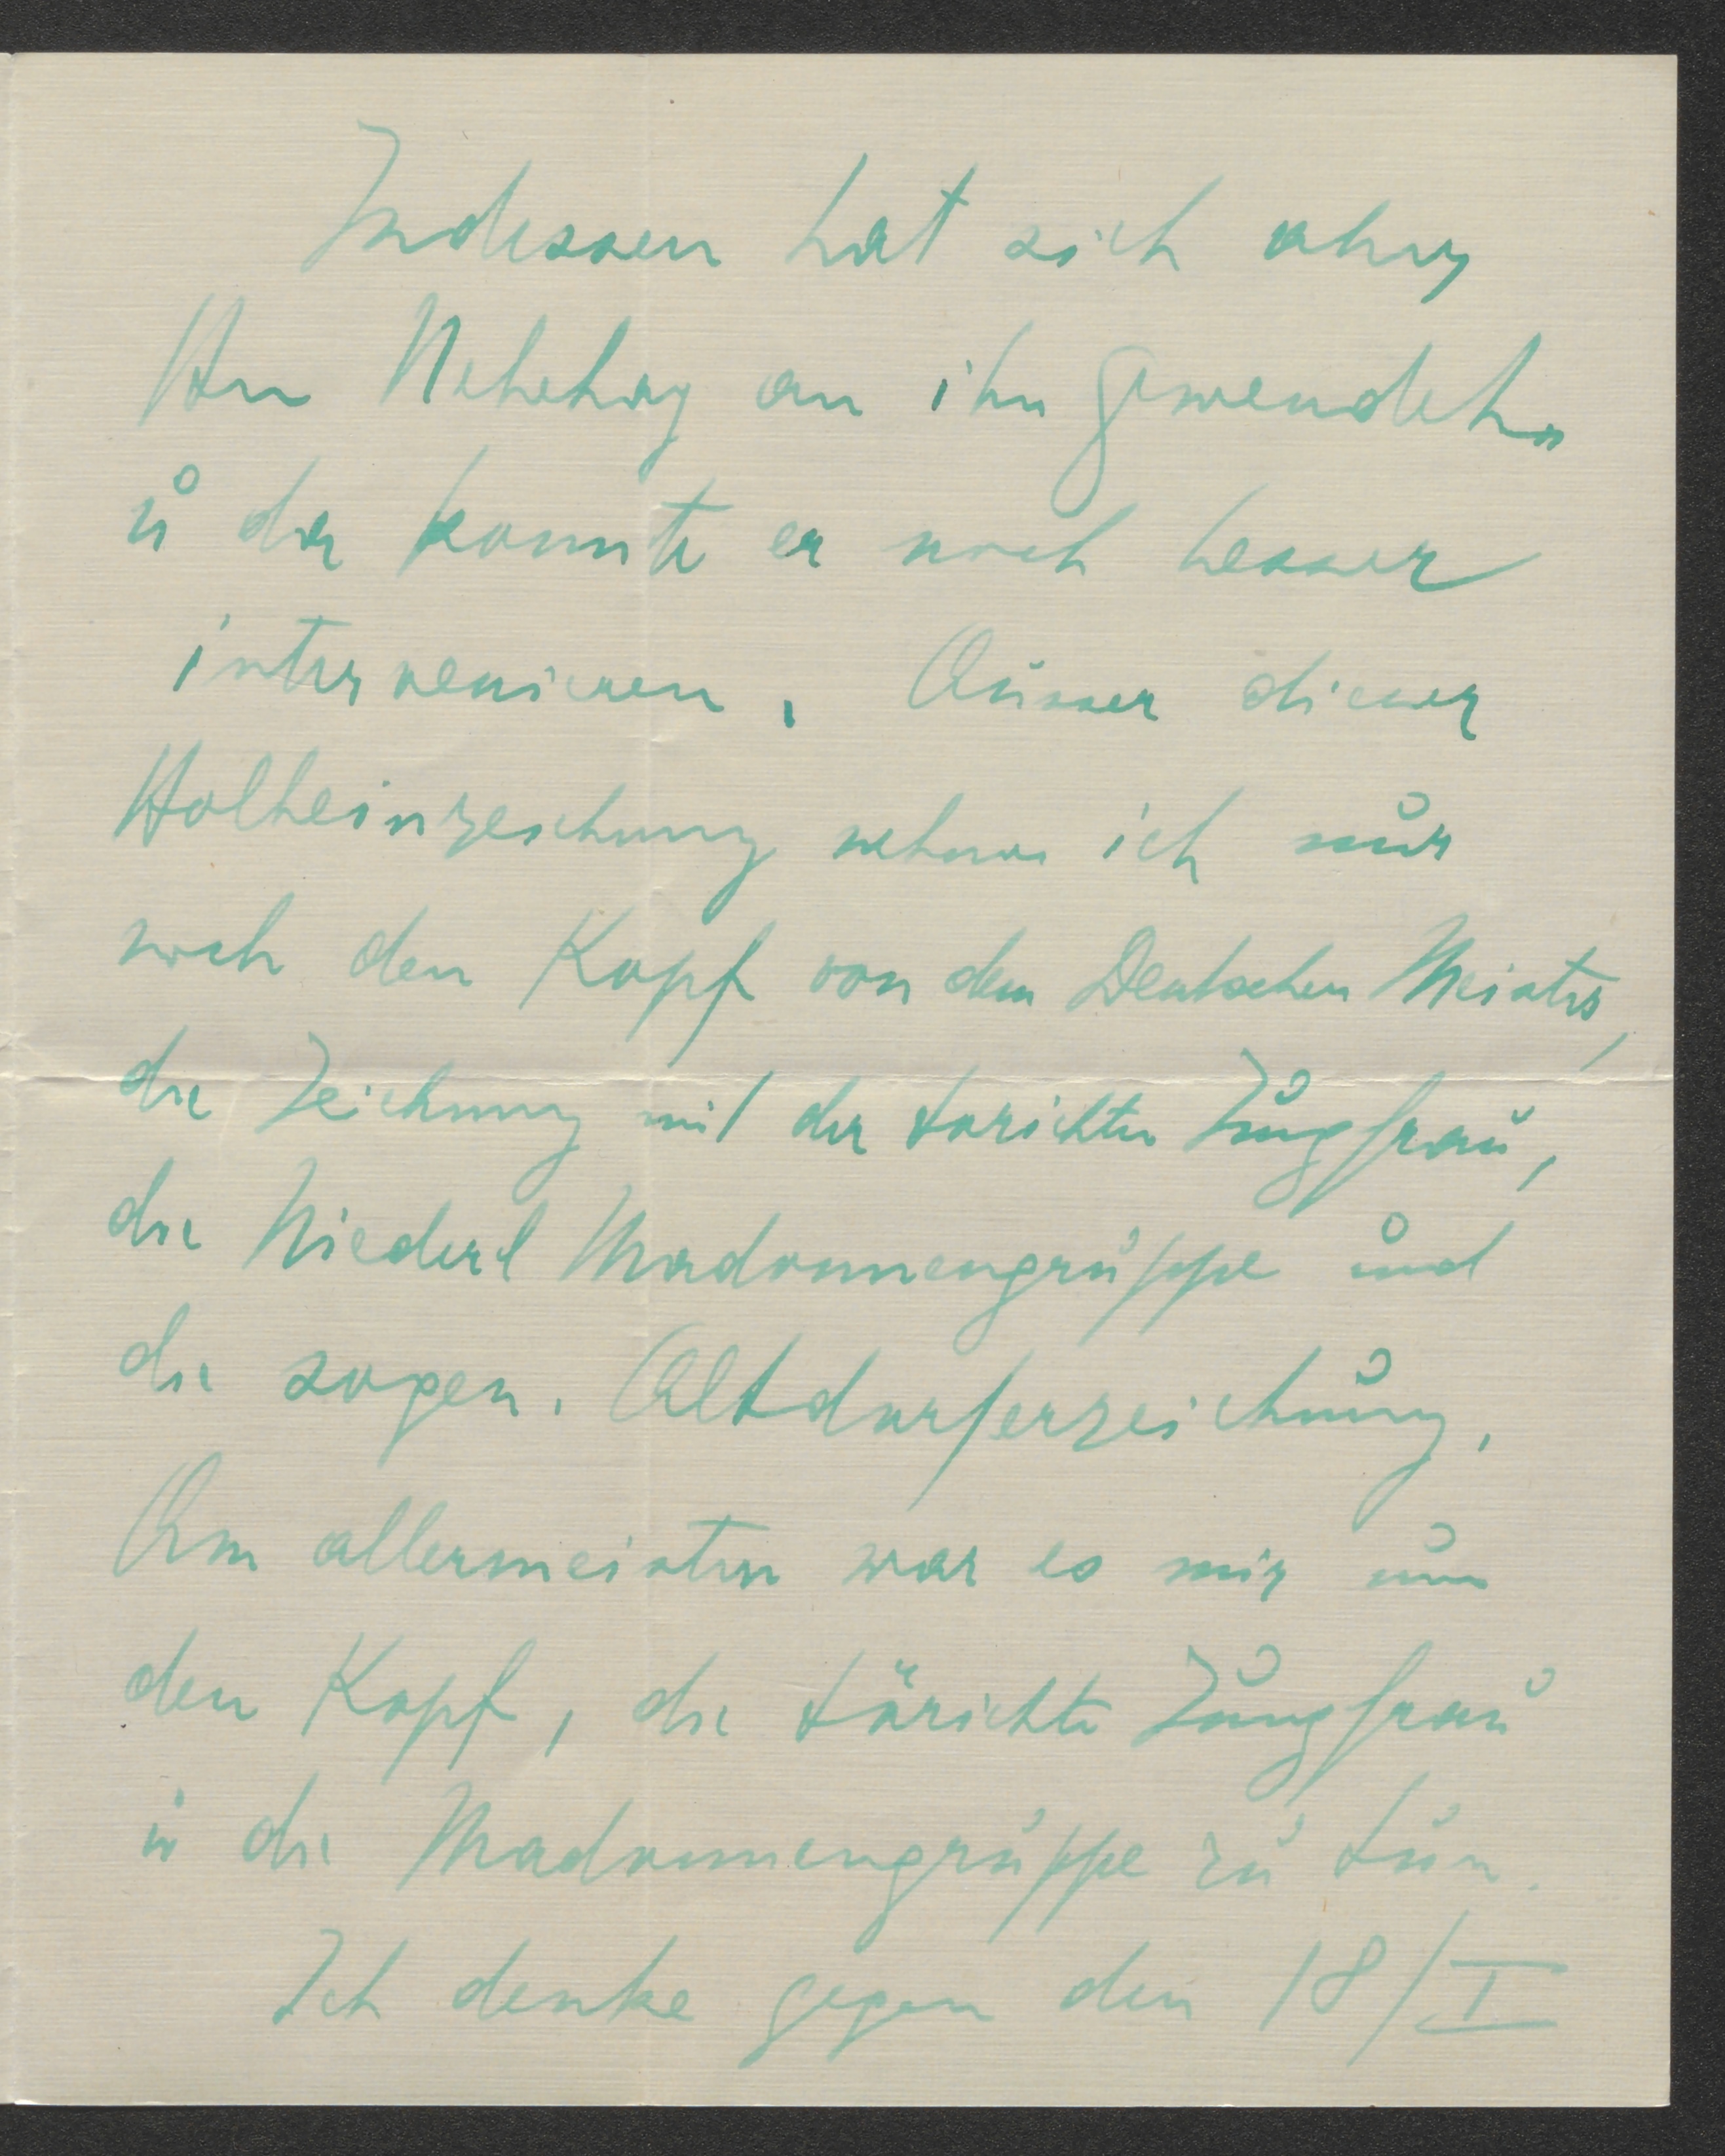 Indessen hat sich
Herr Nebehay an ihn gewendet
u da konnte er noch besser
intervenieren. Ausser dieser
Holbeinzeichnung nehme ich nur
noch den Kopf von dem Deutschen Meister,
die Zeichnung mit der törichten Jungfrau,
die Niederl Madonnengruppe und
die sogen. Altdorferzeichnung.
Am allermeisten war es mir um
den Kopf, die törichte Jungfrau
u die Madonnengruppe zu tun.
Ich denke gegen den 18/I